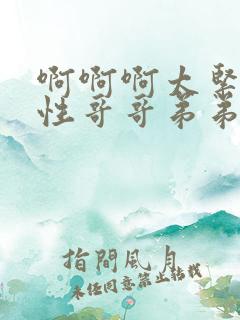 啊啊啊太緊
性哥哥弟弟
指間風月
未经同意禁止转载